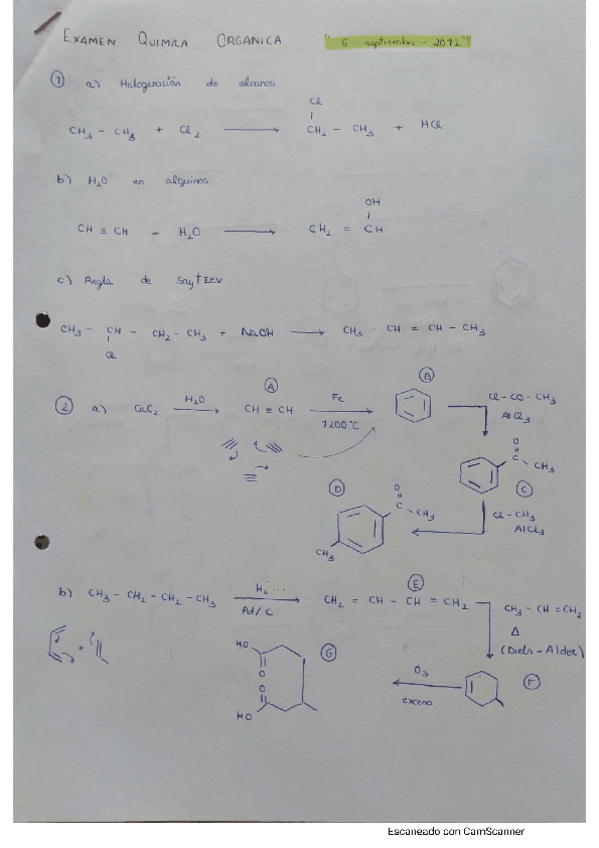 EXAMEN QUIMICA ORGANICA "6 - septiembre - 2012"
① a) Halogenación de alcanos
CH₃ - CH₃ + Cl₂ ⟶ CH₂(Cl) - CH₃ + HCl
b) H₂O en alquinos
CH ≡ CH + H₂O ⟶ CH₂ = CH(OH)
c) Regla de Saytzev
CH₃ - CH(Cl) - CH₂ - CH₃ + NaOH ⟶ CH₃ - CH = CH - CH₃
② a) CaC₂ H₂O ⟶ Ⓐ CH ≡ CH Fe 1200°C ⟶ Ⓑ Cl - CO - CH₃
AlCl₃
O
C
CH₃
Ⓒ
Cl - CH₃
AlCl₃
Ⓓ O
C - CH₃
CH₃
b) CH₃ - CH₂ - CH₂ - CH₃ H₂ Pd/C ⟶ Ⓔ CH₂ = CH - CH = CH₂ CH₃ - CH = CH₂
Δ
(Diels - Alder)
+
HO O
O HO
Ⓖ
O₃
exceso
Ⓕ
Escaneado con CamScanner